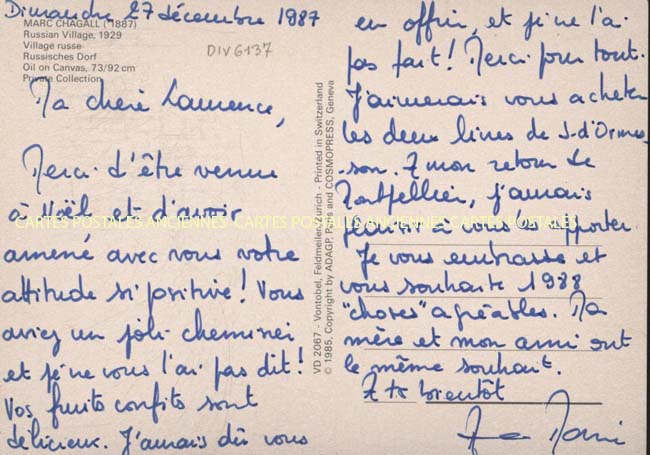 Dimanche 27 décembre 1987
MARC CHAGALL (*1887)
Russian Village, 1929
Village russe
Russisches Dorf
Oil on Canvas, 73/92 cm
Private Collection
DIV6137
Ma chère Laurence,
Merci d'être venue
à Noël et d'avoir
amené avec vous votre
attitude si positive! Vous
aviez un joli chemisier
et je ne vous l'ai pas dit!
Vos fruits confits sont
délicieux. J'aurais dû vous
VD 2067 - Vontobel, Feldmeilen/Zurich - Printed in Switzerland
© 1985, Copyright by ADAGP, Paris and COSMOPRESS, Geneva
en offrir, et je ne l'ai
pas fait! Merci pour tout.
J'aimerais vous acheter
les deux livres de J. d'Ormes
-son. A mon retour de
Montpellier, j'aurais
plaisir à vous les apporter.
Je vous embrasse et
vous souhaite 1988
"choses" agréables. Ma
mère et mon ami ont
le même souhait.
A ts bientôt
CARTES POSTALES ANCIENNES CARTES POSTALES ANCIENNES CARTES POSTALES